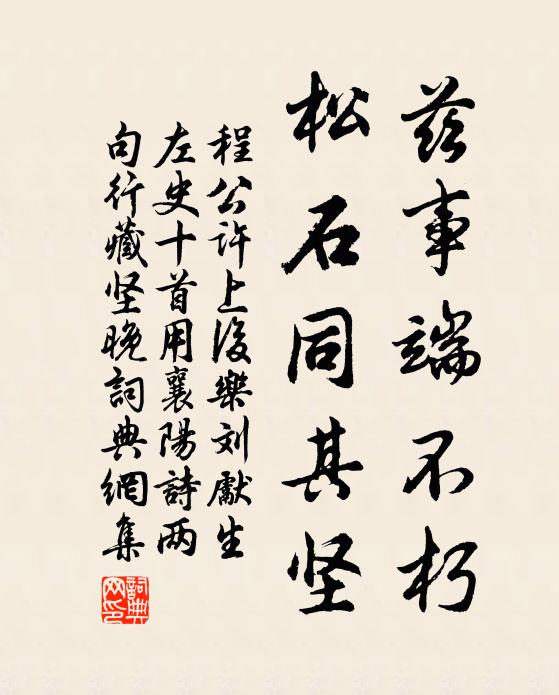 兹事端不朽
松石同其坚
程公许上后乐刘献生
左史十首用襄陽詩两
句行藏坚晚詞典網集
詞典網印